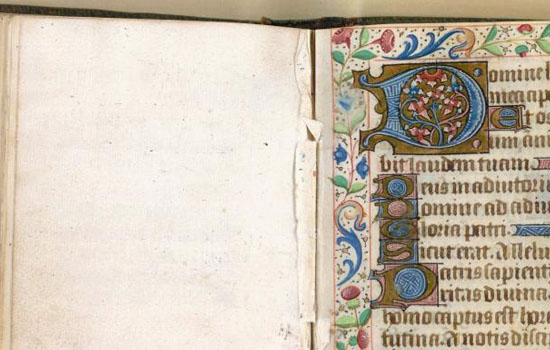 Domine l
mea ap
Et o
um an
bit laudem tuam
Deus in adiutori
Domine ad adiu
Gloria patri.
Sicut erat. Allelu
Patris sapient
ritas diuina
homo captus est hore
tutina. A notis disci